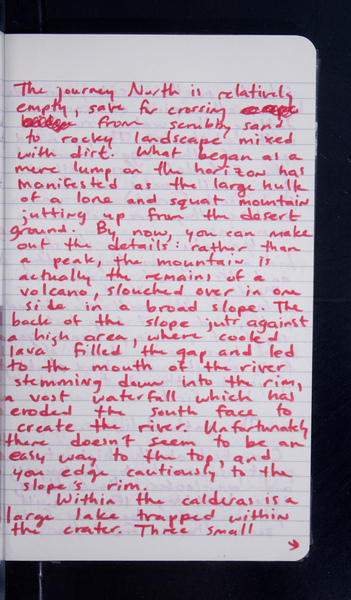 The journey North is relatively
empty, save for crossing
from scrubby sand
to rocky landscape mixed
with dirt. What began as a
mere lump on the horizon has
manifested as the large hulk
of a lone and squat mountain
jutting up from the desert
ground. By now, you can make
out the details: rather than
a peak, the mountain is
actually the remains of a
volcano, slouched over in one
side in a broad slope. The
back of the slope juts against
a high area, where cooled
lava filled the gap and led
to the mouth of the river
stemming down into the rim,
a vast waterfall which has
eroded the south face to
create the river. Unfortunately
there doesn't seem to be an
easy way to the top, and
you edge cautiously to the
slope's rim.
Within the calderas is a
large lake trapped within
the crater. Three small
→